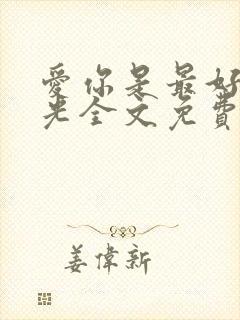 愛你是最好
光全文免費
姜偉新